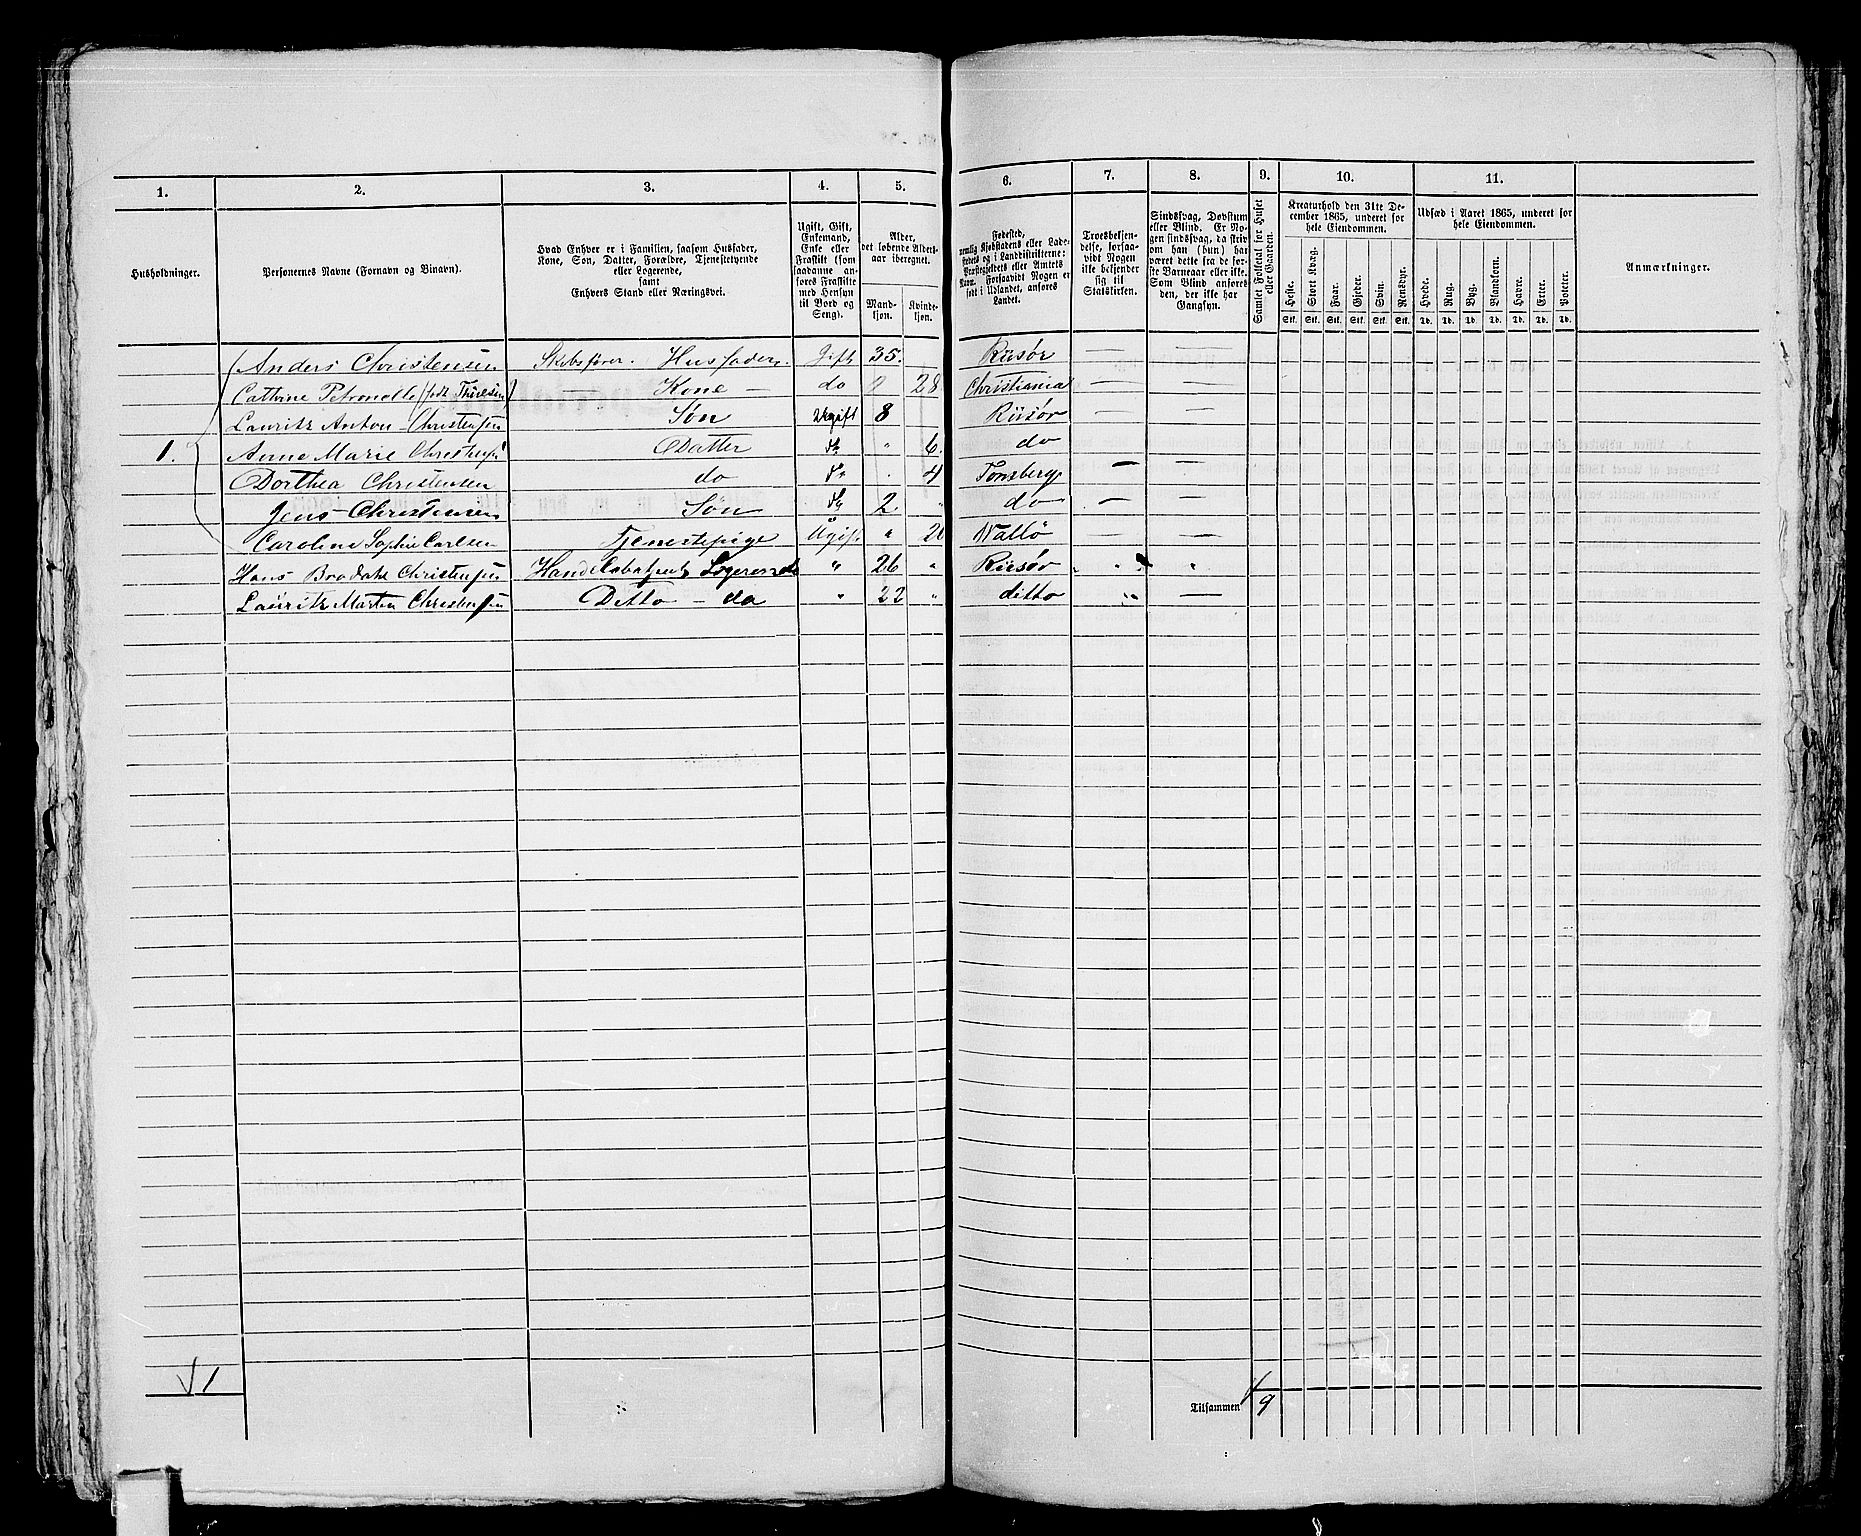 1. 2. 3. 4. 5. 6. 7. 8. 9. 10. 11.
Husholdninger.
Personernes Navne (Fornavn og Binavn).
Hvad Enhver er i Familien, saasom Husfader,
Kone, Søn, Datter, Forældre, Tjenestytende
eller Logerende,
samt
Enhvers Stand eller Næringsvei.
Ugift, Gift,
Enkemand,
Enke eller
Fraskilt (som
saadanne an-
føres Fraskilte
med Hensyn
til Bord og
Seng).
Alder,
det løbende Alders-
aar iberegnet.
Mand-
kjøn.
Kvinde-
kjøn.
Fødested,
nemlig Kjøbstadens eller Lade-
stedets og i Landdistrikterne:
Præstegjeldets eller Amtets
Navn. Forsaavidt Nogen er
født i Udlandet, anføres
Landet.
Troesbekjen-
delse, forsaa-
vidt Nogen
ikke bekjender
sig til
Statskirken.
Sindssvag, Døvstum
eller Blind. Er No-
gen sindssvag, da skriv
om han (hun) har
været dette fra de før-
ste Barneaar eller ikke.
Som Blind anføres
den, der ikke har
Gangsyn.
Samlet Folketal for Huset
eller Gaarden.
Kreaturhold den 31te De-
cember 1865, underet for
hele Eiendommen.
Heste. Stort Kvæg. Faar. Gjeder. Svin. Rensdyr.
Stk. Stk. Stk. Stk. Stk. Stk.
Udsæd i Aaret 1865, underet for
hele Eiendommen.
Hvede. Rug. Byg. Blandkorn. Havre. Erter. Poteter.
Td. Td. Td. Td. Td. Td. Td.
Anmærkninger.
Anders Christensen Skibsfører. Husfader. Gift 35. Riisør — —
Cathrine Petronelle (født Thiresen) — Kone — do " 28 Christiania — —
Lauritz Anton Christensen Søn Ugift 8 Riisør — —
1. Anne Marie Christensen Datter do " 6. do
Dorthea Christensen do do . 4 Tønsberg — —
Jens Christensen Søn do 2 " do — —
Caroline Sophie Carlsen Tjenestepige Ugift " 20 Wallø — —
Hans Brodahl Christensen Handelsbetjent Logerende " 26 " Riisør " "
Lauritz Martin Christensen Ditto — do " 22 " ditto " —
1
Tilsammen 9